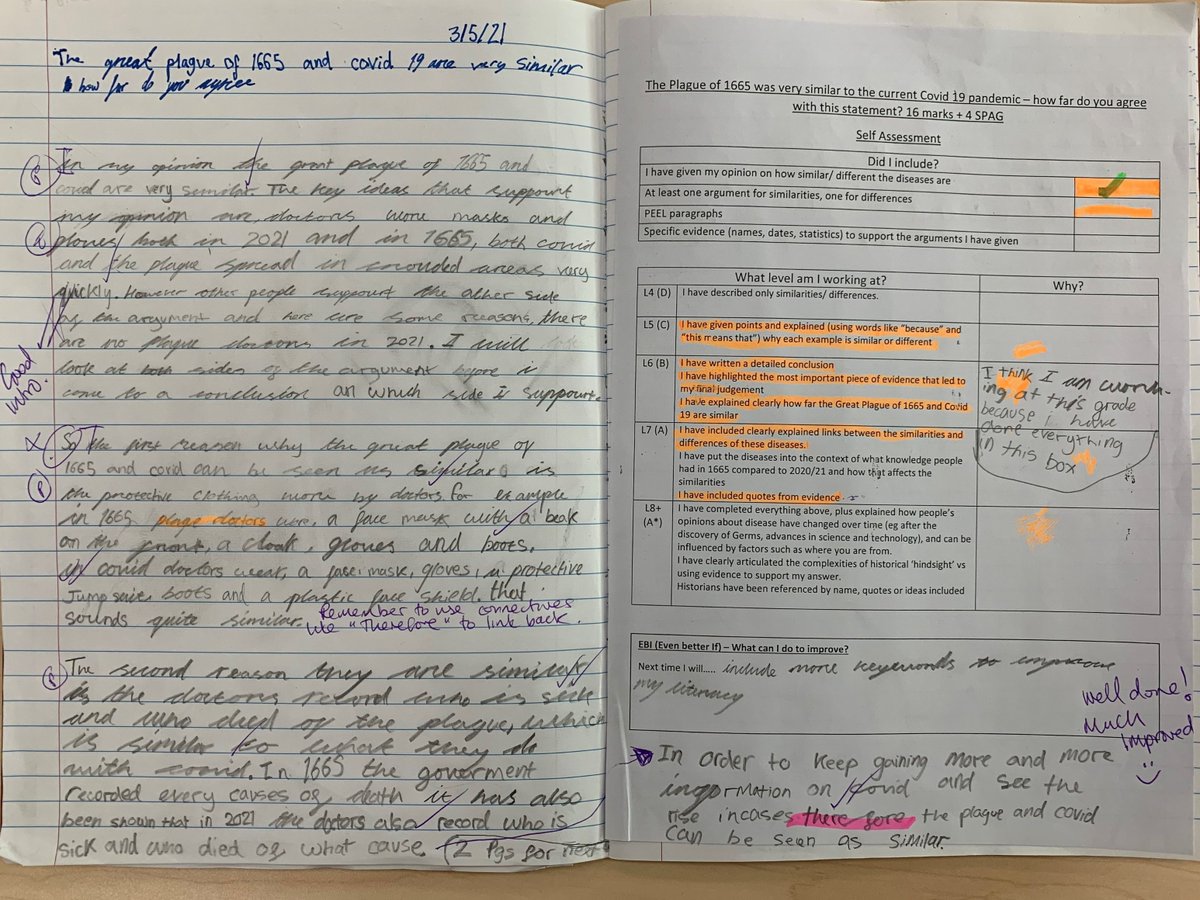 3/5/21
The great plague of 1665 and covid 19 are very similar
how far do you agree
In my opinion the great plague of 1665 and
covid are very similar. The key ideas that suppourt
my opinion are, doctors wore masks and
gloves both in 2021 and in 1665, both covid
and the plague spread in crowded areas very
quickly. However other people suppourt the other side
of the argument and here are some reasons, there
are no plague doctors in 2021. I will
look at both sides of the argument before i
come to a conclusion on which side I suppourt.
Good intro.
So The first reason why the great plague of
1665 and covid can be seen as similar is
the protective clothing wore by doctors. for example
in 1665 plage doctors wore, a face mask with a beak
on the front, a cloak, gloves and boots.
in covid doctors wear, a face mask, gloves, a protective
Jump suit, boots and a plastic face shield. that
sounds quite similar.
Remember to use connectives
like "Therefore" to link back.
The second reason they are similar
is the doctors record who is sick
and who died of the plague, which
is similar to what they do
with covid. In 1665 the goverment
recorded every causes of death it has also
been shown that in 2021 the doctors also record who is
sick and who died of what cause (2 Pgs for
The Plague of 1665 was very similar to the current Covid 19 pandemic – how far do you agree
with this statement? 16 marks + 4 SPAG
Self Assessment
Did I include?
I have given my opinion on how similar/ different the diseases are
At least one argument for similarities, one for differences
PEEL paragraphs
Specific evidence (names, dates, statistics) to support the arguments I have given
What level am I working at?
Why?
L4 (D)
I have described only similarities/ differences.
L5 (C)
I have given points and explained (using words like "because" and
"this means that") why each example is similar or different
L6 (B)
I have written a detailed conclusion
I have highlighted the most important piece of evidence that led to
my final judgement
I have explained clearly how far the Great Plague of 1665 and Covid
19 are similar
I think I am work-
ing at this grade
because I have
done everything
in this box
L7 (A)
I have included clearly explained links between the similarities and
differences of these diseases.
I have put the diseases into the context of what knowledge people
had in 1665 compared to 2020/21 and how that affects the
similarities
I have included quotes from evidence
L8+
(A*)
I have completed everything above, plus explained how people's
opinions about disease have changed over time (eg after the
discovery of Germs, advances in science and technology), and can be
influenced by factors such as where you are from.
I have clearly articulated the complexities of historical 'hindsight' vs
using evidence to support my answer.
Historians have been referenced by name, quotes or ideas included
EBI (Even better If) – What can I do to improve?
Next time I will..... include more keywords to improve
my literacy
well done!
Much
improved
In order to keep gaining more and more
information on covid and see the
rise incases there fore the plague and covid
can be seen as similar.